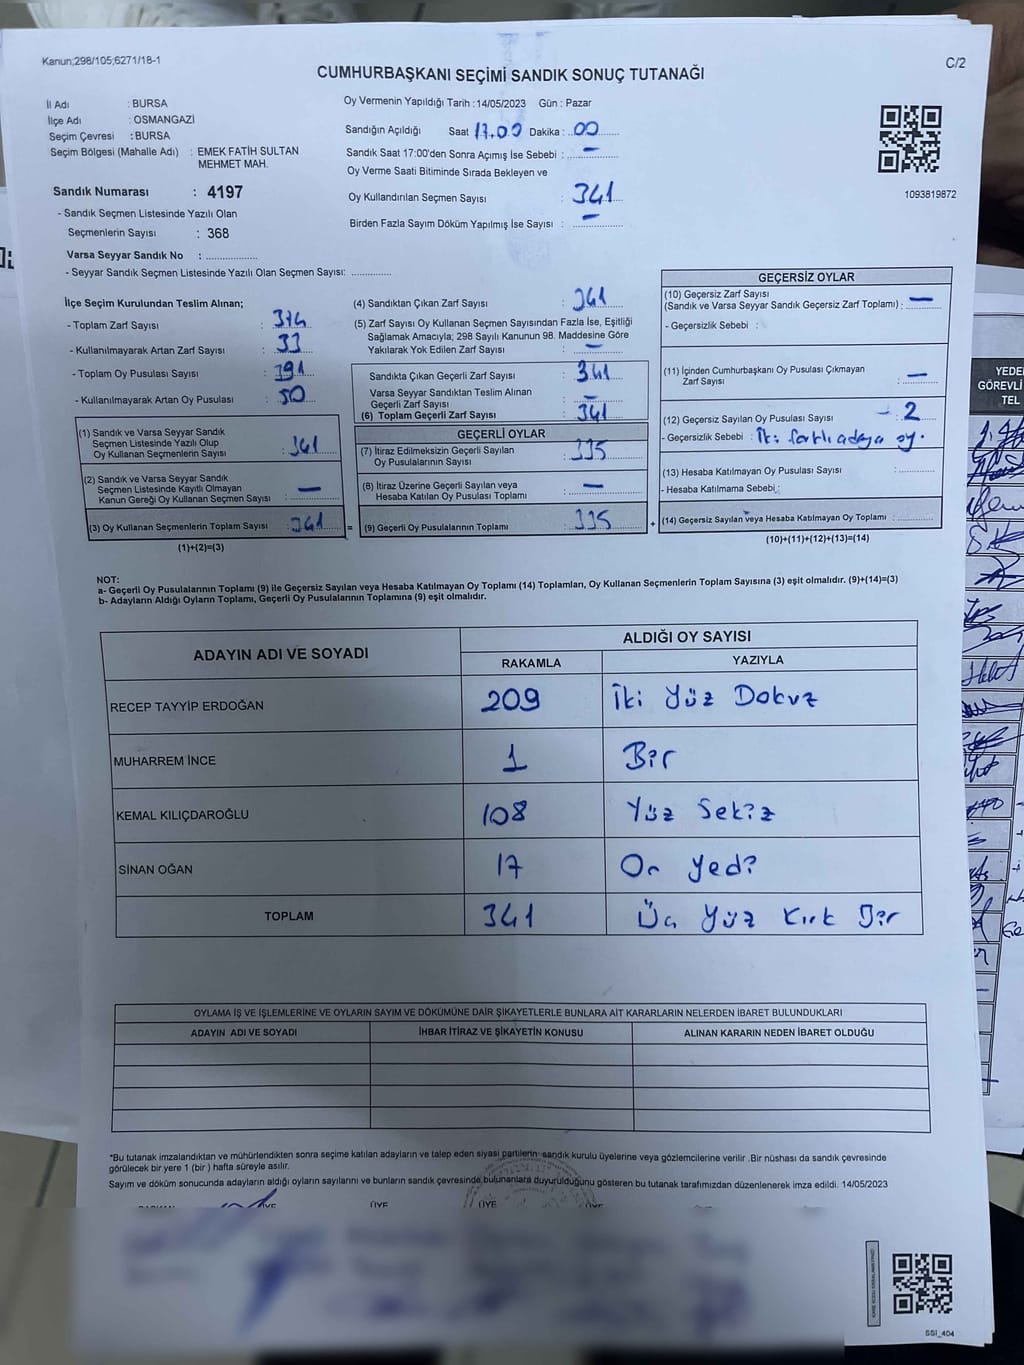 Kanun;298/105;6271/18-1
C/2
CUMHURBAŞKANI SEÇİMİ SANDIK SONUÇ TUTANAĞI
İl Adı : BURSA
İlçe Adı : OSMANGAZİ
Seçim Çevresi : BURSA
Seçim Bölgesi (Mahalle Adı) : EMEK FATİH SULTAN
MEHMET MAH.
Sandık Numarası : 4197
- Sandık Seçmen Listesinde Yazılı Olan
Seçmenlerin Sayısı : 368
Varsa Seyyar Sandık No : ................
- Seyyar Sandık Seçmen Listesinde Yazılı Olan Seçmen Sayısı: .............
Oy Vermenin Yapıldığı Tarih : 14/05/2023 Gün : Pazar
Sandığın Açıldığı Saat 17.00 Dakika : 00
Sandık Saat 17:00'den Sonra Açımış İse Sebebi : —
Oy Verme Saati Bitiminde Sırada Bekleyen ve
Oy Kullandırılan Seçmen Sayısı : 341
Birden Fazla Sayım Döküm Yapılmış İse Sayısı : —
1093819872
İlçe Seçim Kurulundan Teslim Alınan;
- Toplam Zarf Sayısı : 374
- Kullanılmayarak Artan Zarf Sayısı : 33
- Toplam Oy Pusulası Sayısı : 391
- Kullanılmayarak Artan Oy Pusulası : 50
(1) Sandık ve Varsa Seyyar Sandık
Seçmen Listesinde Yazılı Olup
Oy Kullanan Seçmenlerin Sayısı : 341
(2) Sandık ve Varsa Seyyar Sandık
Seçmen Listesinde Kayıtlı Olmayan
Kanun Gereği Oy Kullanan Seçmen Sayısı : —
(3) Oy Kullanan Seçmenlerin Toplam Sayısı : 341 =
(1)+(2)=(3)
(4) Sandıktan Çıkan Zarf Sayısı : 341
(5) Zarf Sayısı Oy Kullanan Seçmen Sayısından Fazla İse, Eşitliği
Sağlamak Amacıyla; 298 Sayılı Kanunun 98. Maddesine Göre
Yakılarak Yok Edilen Zarf Sayısı : —
Sandıkta Çıkan Geçerli Zarf Sayısı : 341
Varsa Seyyar Sandıktan Teslim Alınan
Geçerli Zarf Sayısı : —
(6) Toplam Geçerli Zarf Sayısı : 341
GEÇERLİ OYLAR
(7) İtiraz Edilmeksizin Geçerli Sayılan
Oy Pusulalarının Sayısı : 335
(8) İtiraz Üzerine Geçerli Sayılan veya
Hesaba Katılan Oy Pusulası Toplamı : —
(9) Geçerli Oy Pusulalarının Toplamı : 335 +
GEÇERSİZ OYLAR
(10) Geçersiz Zarf Sayısı
(Sandık ve Varsa Seyyar Sandık Geçersiz Zarf Toplamı) : —
- Geçersizlik Sebebi :
(11) İçinden Cumhurbaşkanı Oy Pusulası Çıkmayan
Zarf Sayısı : —
(12) Geçersiz Sayılan Oy Pusulası Sayısı - 2
- Geçersizlik Sebebi : İki farklı adaya oy.
(13) Hesaba Katılmayan Oy Pusulası Sayısı : ..........
- Hesaba Katılmama Sebebi :
(14) Geçersiz Sayılan veya Hesaba Katılmayan Oy Toplamı : ..........
(10)+(11)+(12)+(13)=(14)
NOT:
a- Geçerli Oy Pusulalarının Toplamı (9) ile Geçersiz Sayılan veya Hesaba Katılmayan Oy Toplamı (14) Toplamları, Oy Kullanan Seçmenlerin Toplam Sayısına (3) eşit olmalıdır. (9)+(14)=(3)
b- Adayların Aldığı Oyların Toplamı, Geçerli Oy Pusulalarının Toplamına (9) eşit olmalıdır.
ADAYIN ADI VE SOYADI
ALDIĞI OY SAYISI
RAKAMLA YAZIYLA
RECEP TAYYİP ERDOĞAN 209 İki Yüz Dokuz
MUHARREM İNCE 1 Bir
KEMAL KILIÇDAROĞLU 108 Yüz Sekiz
SİNAN OĞAN 17 On Yedi
TOPLAM 341 Üç Yüz Kırk Bir
OYLAMA İŞ VE İŞLEMLERİNE VE OYLARIN SAYIM VE DÖKÜMÜNE DAİR ŞİKAYETLERLE BUNLARA AİT KARARLARIN NELERDEN İBARET BULUNDUKLARI
ADAYIN ADI VE SOYADI İHBAR İTİRAZ VE ŞİKAYETİN KONUSU ALINAN KARARIN NEDEN İBARET OLDUĞU
*Bu tutanak imzalandıktan ve mühürlendikten sonra seçime katılan adayların ve talep eden siyasi partilerin sandık kurulu üyelerine veya gözlemcilerine verilir .Bir nüshası da sandık çevresinde
görülecek bir yere 1 (bir ) hafta süreyle asılır.
Sayım ve döküm sonucunda adayların aldığı oyların sayılarını ve bunların sandık çevresinde bulunanlara duyurulduğunu gösteren bu tutanak tarafımızdan düzenlenerek imza edildi. 14/05/2023
BAŞKAN ÜYE ÜYE ÜYE ÜYE
SSI_404
YEDEK
GÖREVLİ
TEL